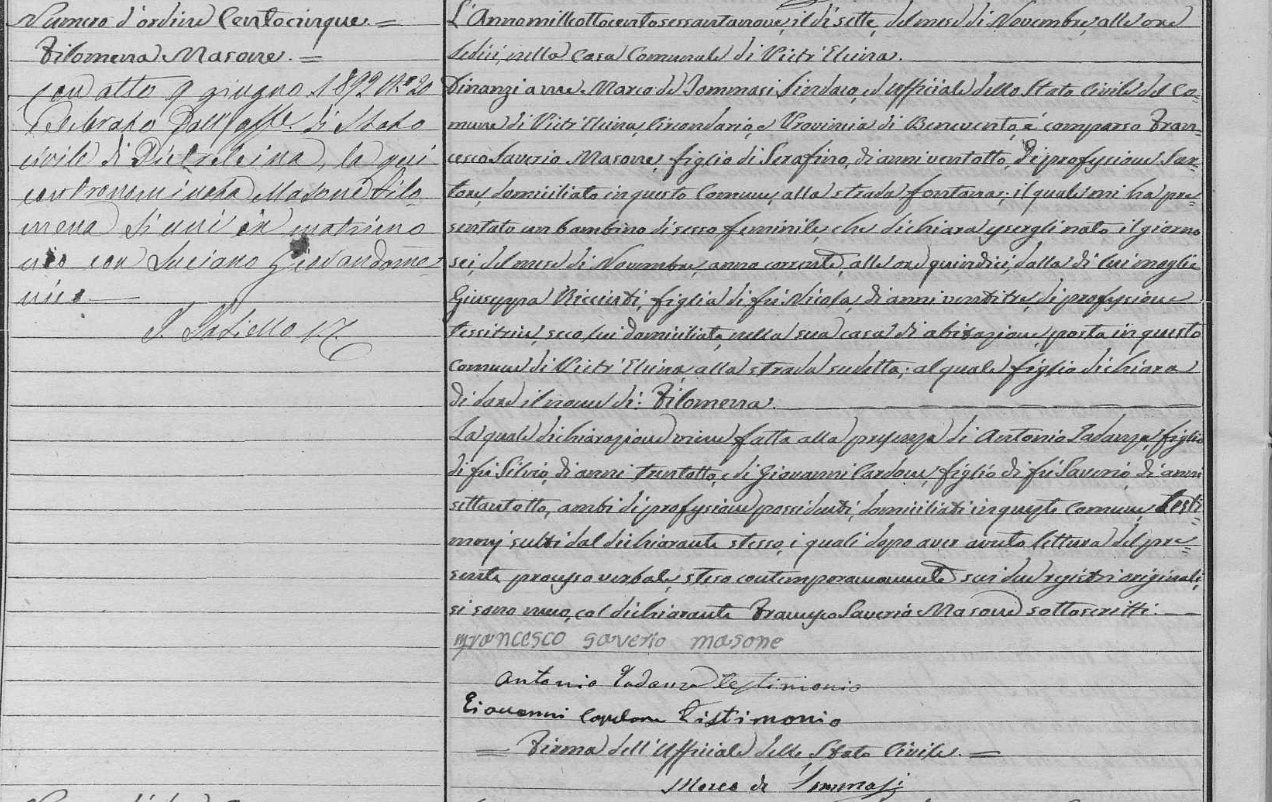 Numero d'ordine Centocinque =
Filomena Masone. =
con atto 9 giugno 1892 N° 20
celebrato dall'uffle. di Stato
civile di Pietrelcina, la qui
contronominata Masone Filo-
mena si unì in matrimo
nio con Luciano Giovandome-
nico.
L'Anno milleottocentosessantanove, il dì sette, del mese di Novembre, alle ore
sedici, nella Casa Comunale di Pietr'Elcina.
Dinanzi a me Marco de Tommasi Sindaco, ed uffiziale dello Stato Civile del Co-
mune di Pietr'Elcina, Circondario, e Provincia di Benevento, è comparso Fran-
cesco Saverio Masone, figlio di Serafino, di anni ventotto, di professione Sar-
tore, domiciliato in questo Comune, alla strada fontana; il quale mi ha pre-
sentato un bambino di sesso feminile, che dichiara essergli nato il giorno
sei, del mese di Novembre, anno corrente, alle ore quindici, dalla di lui moglie
Giuseppa Ricciardi, figlia di fu Nicola, di anni ventitre, di professione
tessitrice, seco lui domiciliata, nella sua casa di abitazione, posta in questo
comune di Pietr'Elcina, alla strada sudetta; al quale figlio dichiara
di dare il nome di: Filomena.
La quale dichiarazione viene fatta alla presenza di Antonio Iadanza, figlio
di fu Silvio, di anni trentotto, e di Giovanni Cardone, figlio di fu Saverio, di anni
settantotto, ambi di professione possidenti, domiciliati in questo Comune, testi-
monj scelti dal dichiarante stesso, i quali dopo aver avuto lettura del pre-
sente processo verbale, steso contemporaneamente sui due registri originali,
si sono meco, col dichiarante Francesco Saverio Masone sottoscritti
francesco saverio masone
Antonio Iadanza testimonio
Giovanni Cardone Testimonio
= Firma dell'Uffiziale dello Stato Civile. =
Marco de Tommasi